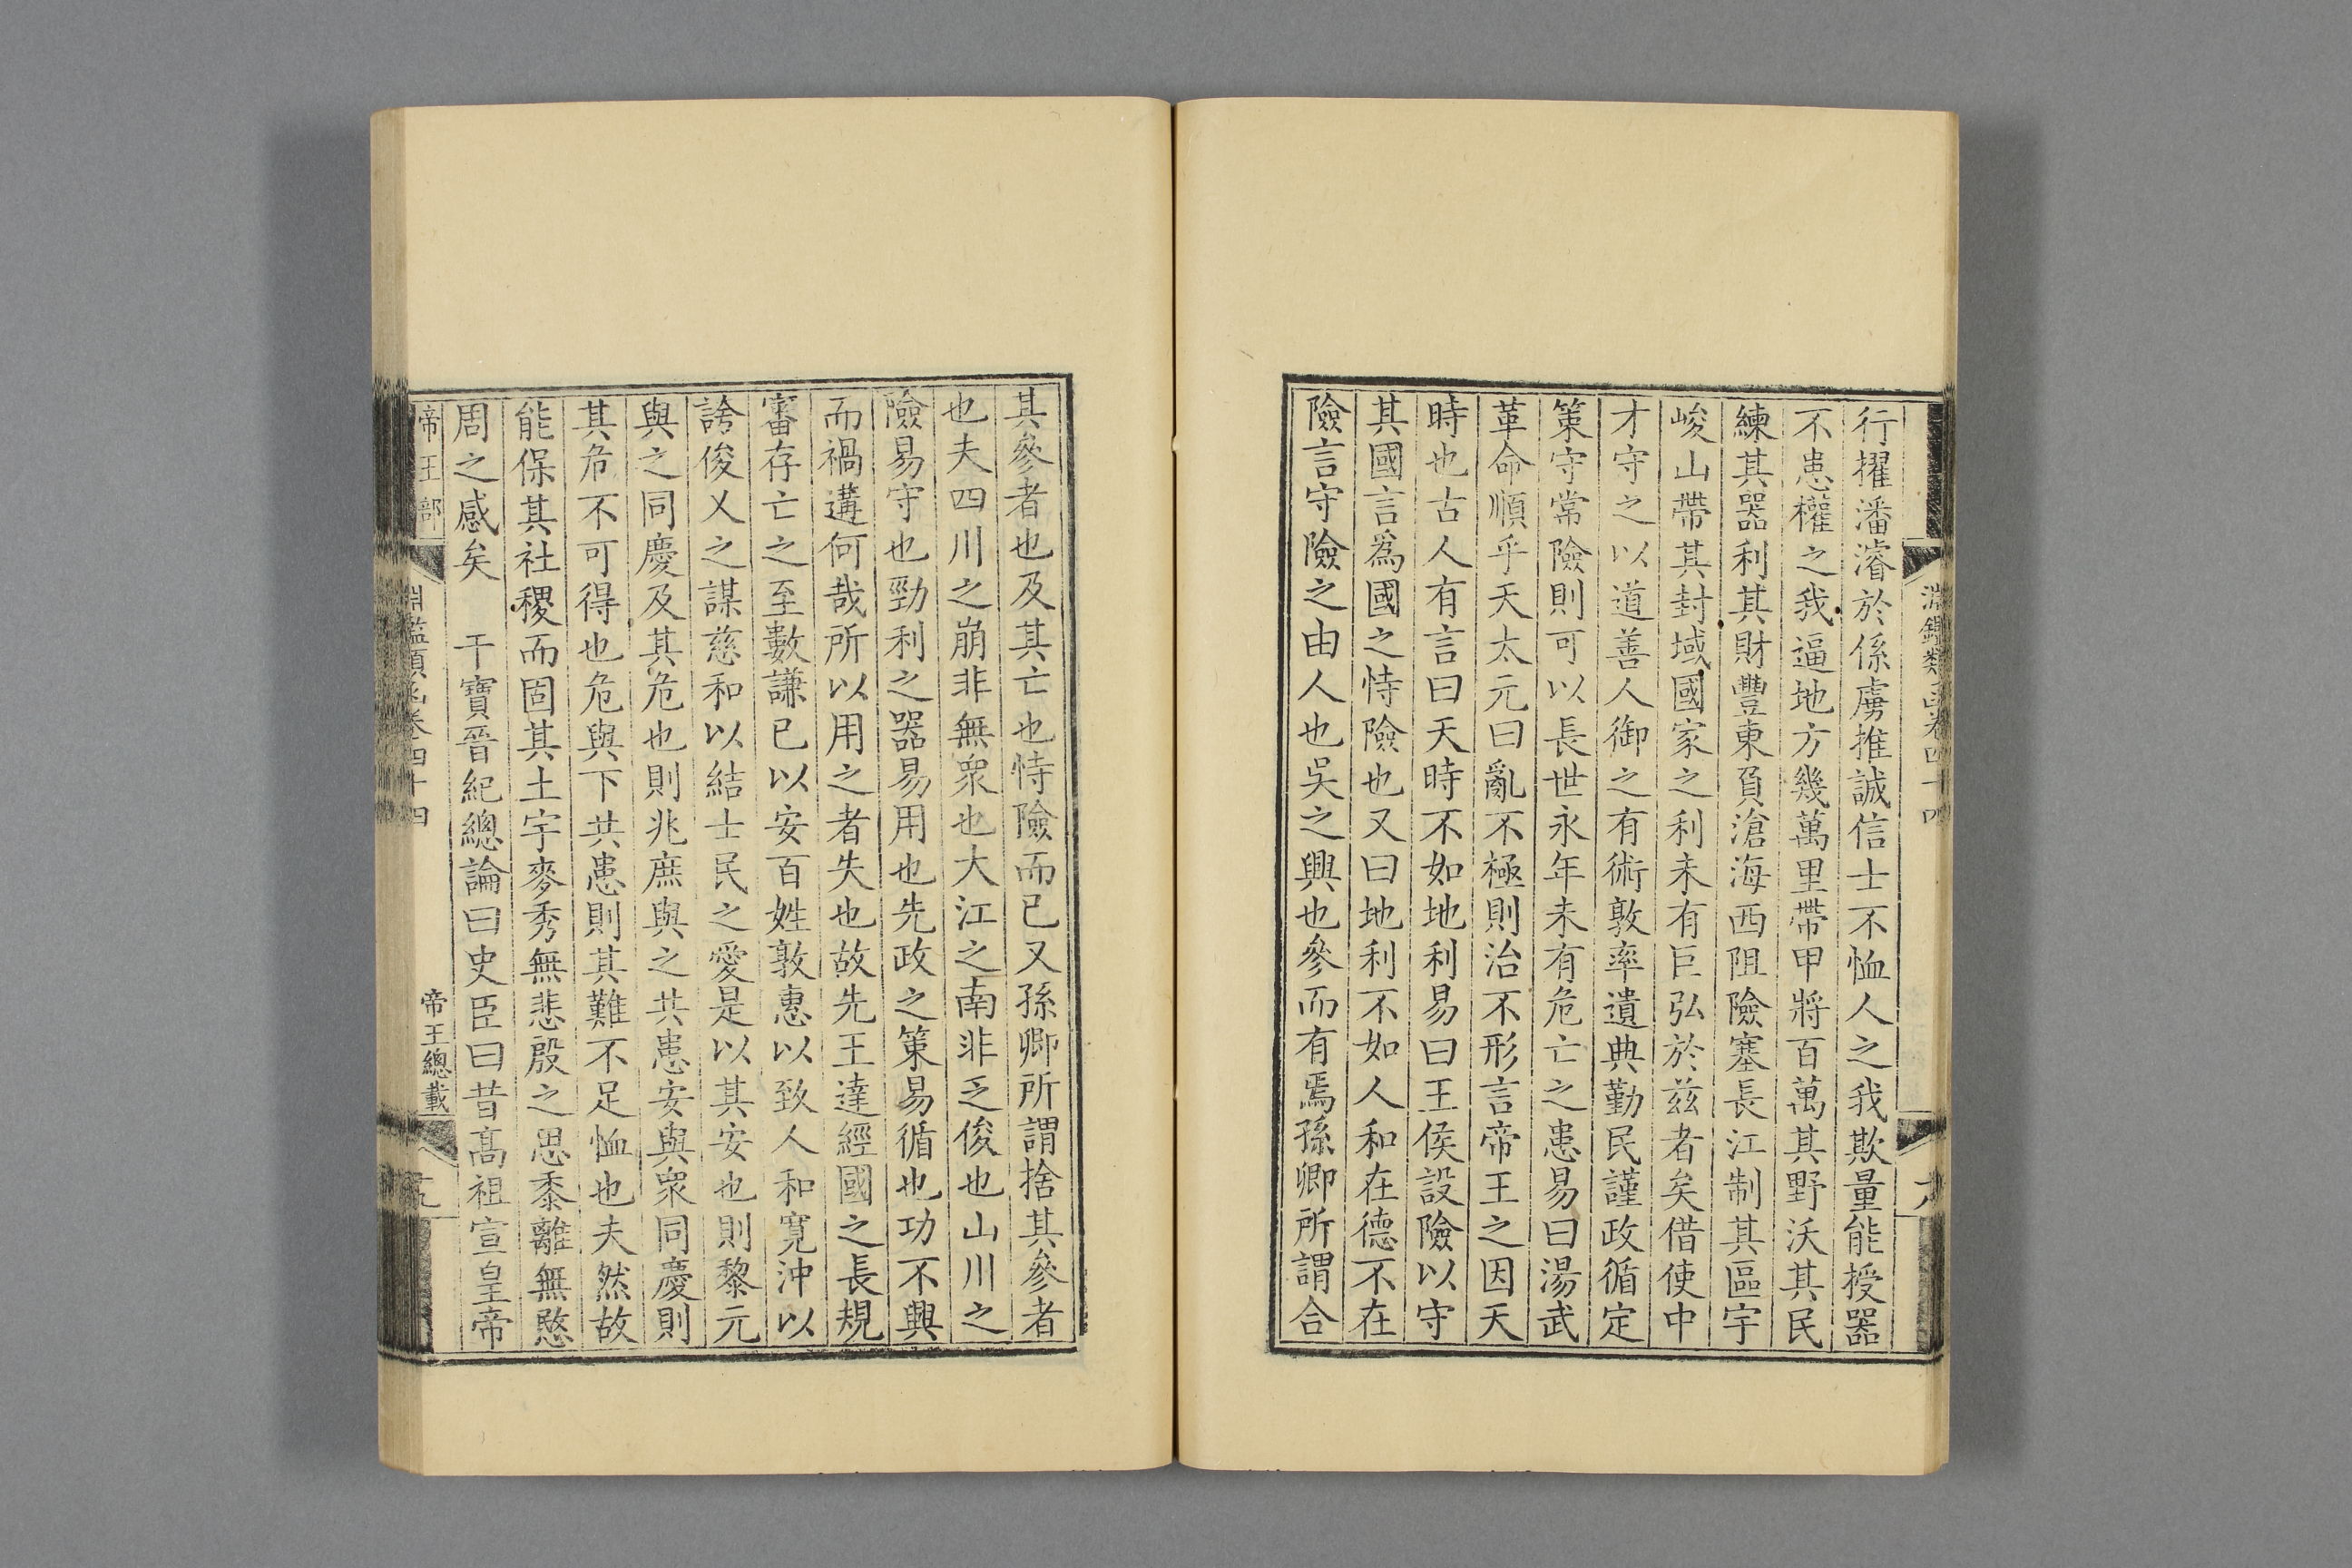 行擢潘濬於係虜推誠信士不恤人之我欺量能授器
不患權之我逼地方幾萬里帶甲將百萬其野沃其民
練其器利其財豐東負滄海西阻險塞長江制其區宇
峻山帶其封域國家之利未有巨弘於茲者矣借使中
才守之以道善人御之有術敦率遺典勤民謹政循定
策守常險則可以長世永年未有危亡之患易曰湯武
革命順乎天太元曰亂不極則治不形言帝王之因天
時也古人有言曰天時不如地利易曰王侯設險以守
其國言爲國之恃險也又曰地利不如人和在德不在
險言守險之由人也吳之興也參而有焉孫卿所謂合
其參者也及其亡也恃險而已又孫卿所謂捨其參者
也夫四川之崩非無衆也大江之南非乏俊也山川之
險易守也勁利之器易用也先政之策易循也功不興
而禍遘何哉所以用之者失也故先王達經國之長規
審存亡之至數謙已以安百姓敦惠以致人和寬沖以
誇俊乂之謀慈和以結士民之愛是以其安也則黎元
與之同慶及其危也則兆庶與之共患安與衆同慶則
其危不可得也危與下共患則其難不足恤也夫然故
能保其社稷而固其土宇麥秀無悲殷之思黍離無愍
周之感矣　干寶晉紀總論曰史臣曰昔高祖宣皇帝
帝王部
淵鑑類函卷四十四
帝王總載